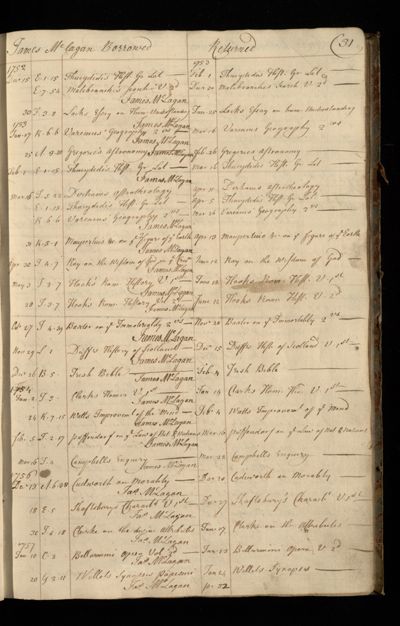 James Mc Lagan Borrowed Returned 31
1752 1753
Dec 15 E.1.15 Thucydidis Hist. Gr Lat Feb. 1 Thucydidis Hist. Gr Lat
E.7.52 Malebranche's search V 2d Jan 20 Malebranches Search V 2d
James McLagan
30 F.3.8 Locks Essay on Hum. Understanding Jan 20 Locks Essay on hum. Understanding
1753 James McLagan
Jan 27 K.6.6 Varenius' Geography 2 vs Mar 16 Varenius Geography 2 vs
James McLagan
25 Gregories Astronomy James McLagan Feb 26 Gregories Astronomy
Feb E.1.15 Thucydidis Hist. Gr Lat Mar 16 Thucydidis Hist. Gr Lat
James McLagan
Mar 16 Derhams Astrotheology Derhams Astrotheology
E.1.15 Thucydidis Hist. Gr Lat Apr 5 Thucydidis Hist. Gr Lat
K.6.6 Varenius Geography 2 vs Mar 26 Varenius Geography 2 vs
James McLagan
31 K.5.1 Maupertuis on ye figure of ye Earth Apr 13 Maupertuis on ye figure of ye Earth
James McLagan
Apr 30 Ray on the Wisdom of God Jun 12 Ray on the Wisdom of God
James McLagan
May 3 Hook's Rom History V 1st June 12 Hooks Rom Hist. V 1st
James McLagan
28 Hook's Rom History V 2d June 12 Hooks Rom Hist. V 2d
James McLagan
Oct 27 Baxter on ye Immortality 2 vs Nov 20 Baxter on ye Immortality 2 vs
James McLagan
Nov 29 Duff's History of Scotland Dec 15 Duffs Hist. of Scotland V 1st
James McLagan
Dec 26 B.5 Irish Bible Feb. 4 Irish Bible
James McLagan
1754
Jan 2 Clarks Homer V 1st Jan 14 Clarks Hom. V 1st
James McLagan
24 K.7.15 Watts Improvemt of the Mind Feb. 4 Watts Improvemt of ye Mind
James McLagan
Feb. 5 Puffendorf on ye Law of Nat. & Nations Mar 16 Puffendorf on ye Law of Nat & Nations
James McLagan
Mar 16 Campbells Enquiry Mar 28 Campbells Enquiry
James McLagan
1756
Dec Cudworth on morality Dec 20 Cudworth on Morality
Jas McLagan
18 Shaftesbury Charact V 1st Dec 27 Shaftesbury's Charact V 1st
Jas McLagan
31 Clarke on the divine Attributes Jan 17 Clarke on the Attributes
1757 Jas McLagan
Jan 10 Bellarmini Opera Vol 2d Jan 18 Bellarmini Opera V 2d
Jas McLagan
20 Willets Synopsis Papismi Jan 24 Willets Synopsis
Jas McLagan p. 32